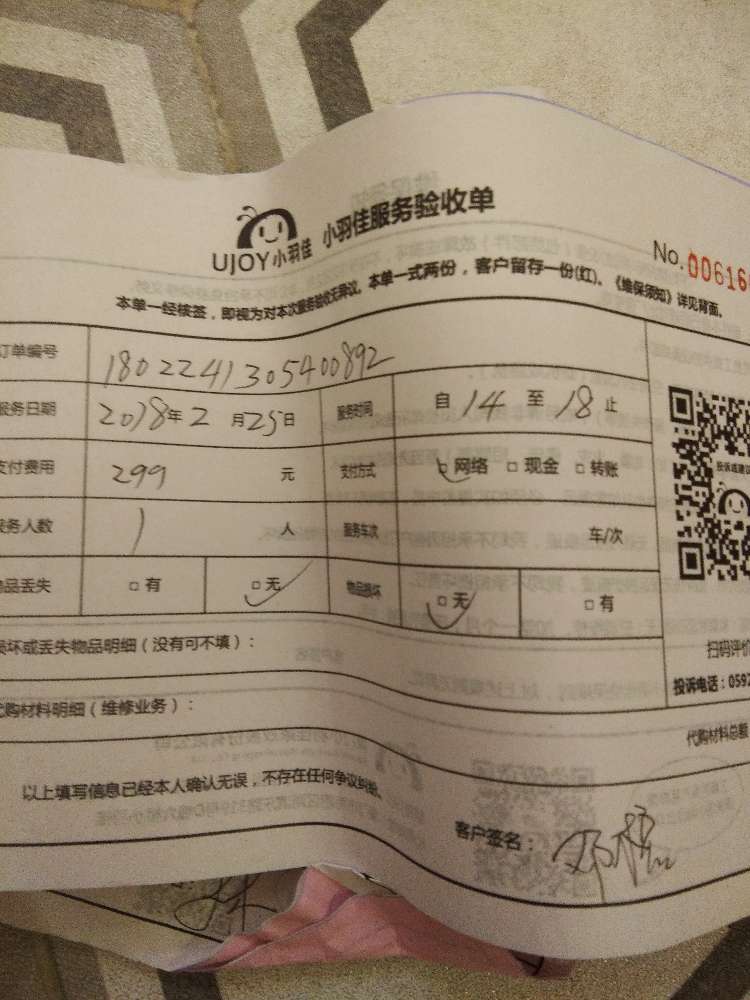 UJOY小羽佳 小羽佳服务验收单
No. 00616
本单一经核签，即视为对本次服务验收无异议。本单一式两份，客户留存一份(红)。《维保须知》详见背面。
订单编号 180224130540892
服务日期 2018年2月25日 服务时间 自14至18止
支付费用 299 元 支付方式 □网络 □现金 □转账
服务人数 1 人 服务车次 车/次
物品丢失 □有 □无 物品损坏 □无 □有
投诉或建议
扫码评价
损坏或丢失物品明细（没有可不填）：
投诉电话：0592
代购材料明细（维修业务）：
代购材料总额
以上填写信息已经本人确认无误，不存在任何争议纠纷。
客户签名：